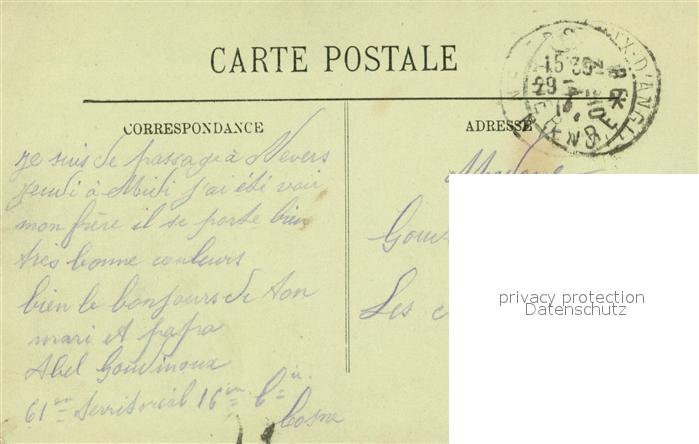 CARTE POSTALE
CORRESPONDANCE
ADRESSE
15 35
29
je suis de passage à Nevers
jeudi à Midi j'ai été voir
mon frère il se porte bien
très bonne couleurs
bien le bonjours de ton
mari et papa
Abel Gouvinoux
61em Territorial 16em
Cosne
Les
privacy protection
Datenschutz